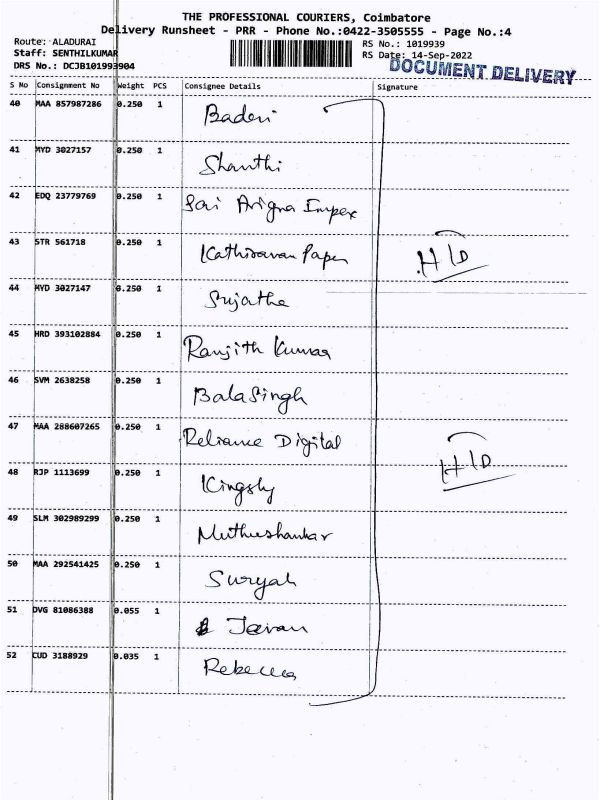 THE PROFESSIONAL COURIERS, Coimbatore
Delivery Runsheet - PRR - Phone No.:0422-3505555 - Page No.:4
Route: ALADURAI
RS No.: 1019939
Staff: SENTHILKUMAR
RS Date: 14-Sep-2022
DRS No.: DCJB101993904
DOCUMENT DELIVERY
S No Consignment No Weight PCS Consignee Details Signature
40 MAA 857987286 0.250 1 Baderi
41 MYD 3027157 0.250 1 Shanthi
42 EDQ 23779769 0.250 1 Sai Arigna Impex
43 STR 561718 0.250 1 Kathiravan Paper H/D
44 MYD 3027147 0.250 1 Sujatha
45 HRD 393102884 0.250 1 Ranjith Kumar
46 SVM 2638258 0.250 1 Balasingh
47 MAA 288607265 0.250 1 Reliance Digital
48 RJP 1113699 0.250 1 Kingsly H/D
49 SLM 302989299 0.250 1 Muthushankar
50 MAA 292541425 0.250 1 Suryah
51 DVG 81086388 0.055 1
52 CUD 3188929 0.035 1 Rebecca